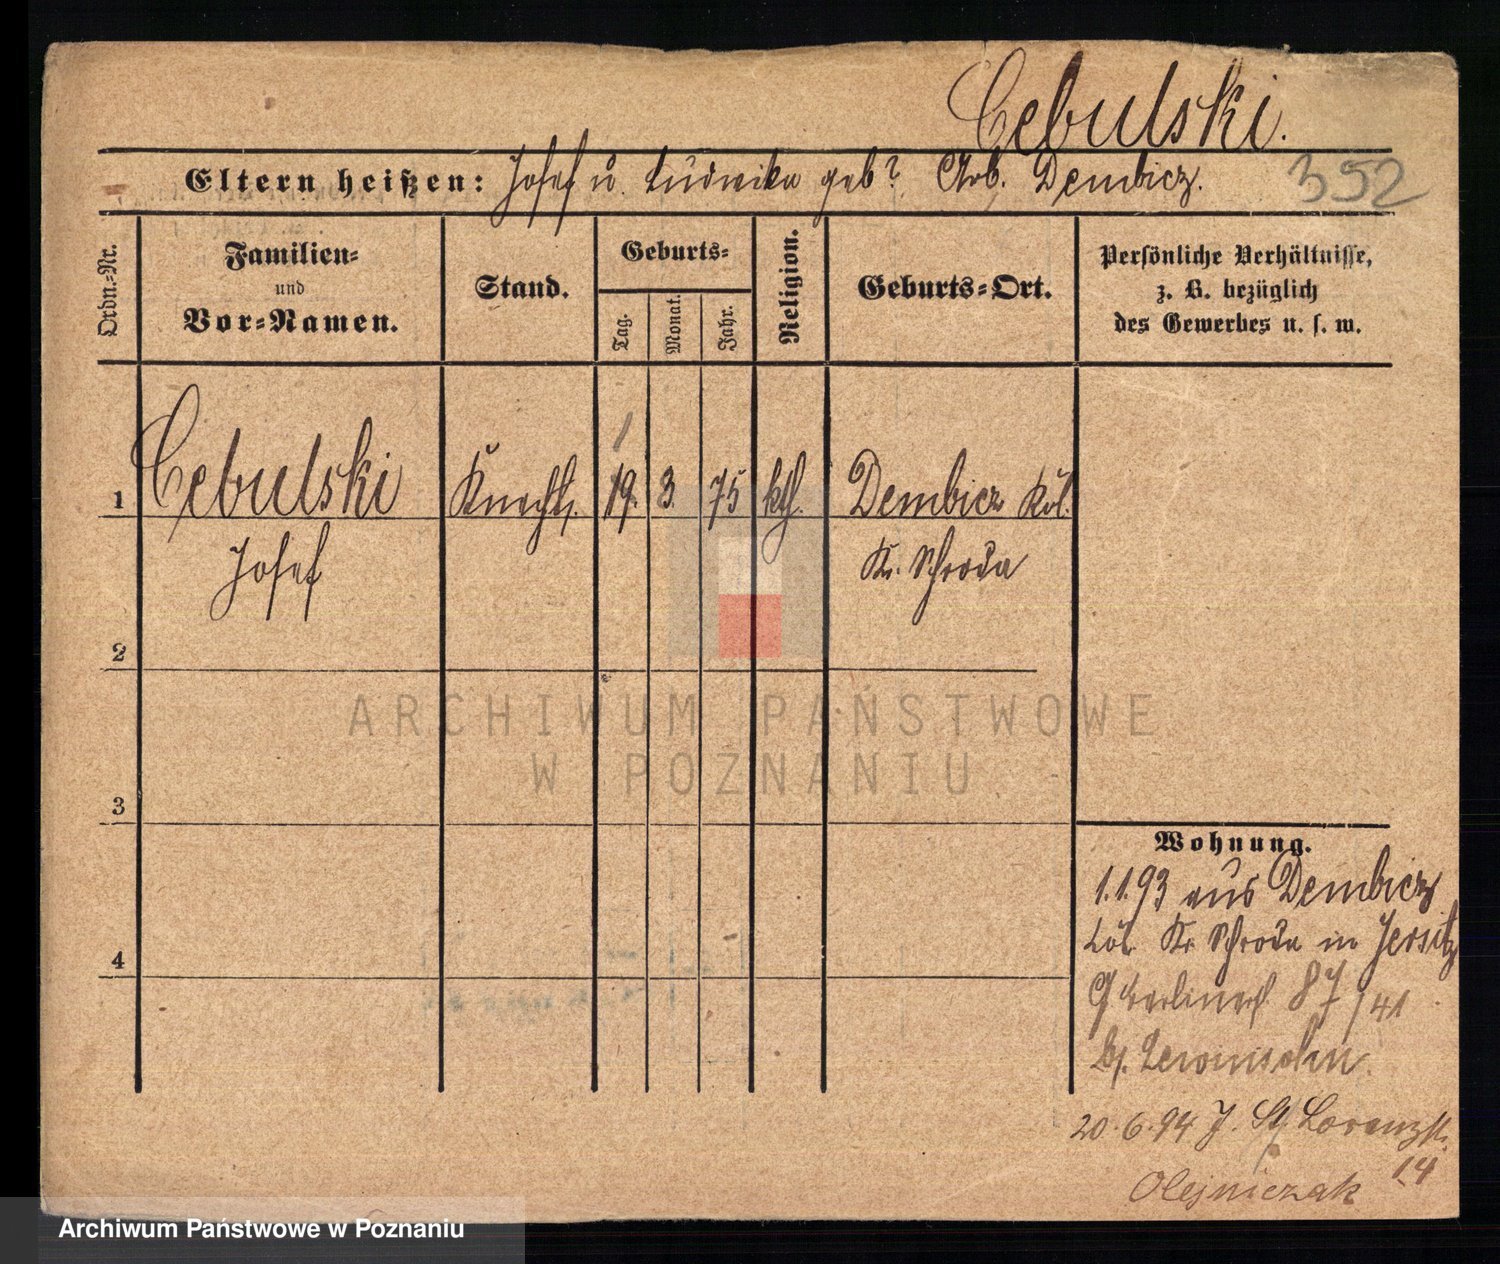 Cebulski.
352
Eltern heißen: Josef u. Ludwika geb? Arb. Dembicz.
Ordn.-Nr.
Familien-
und
Vor-Namen.
Stand.
Geburts-
Tag.
Monat.
Jahr.
Religion.
Geburts-Ort.
Persönliche Verhältnisse,
z. B. bezüglich
des Gewerbes u. s. w.
1
1 Cebulski Knecht. 19. 3. 75 kth. Dembicz Kol.
Josef Kr. Schroda
2
3
4
Wohnung.
1.1.93 aus Dembicz
Kr Schroda in Jersitz
87/41
20.6.94 J. St. Lorenzstr.
14
Olejniczak
ARCHIWUM PAŃSTWOWE
W POZNANIU
Archiwum Państwowe w Poznaniu